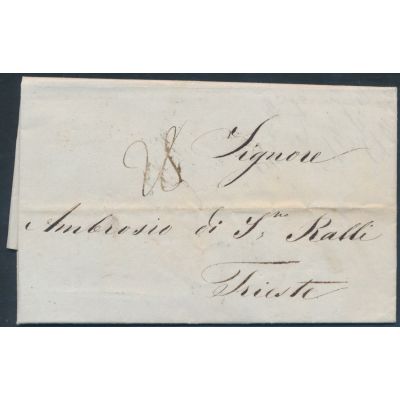 28
Signore
Ambrosio di S.ne Ralli
Trieste